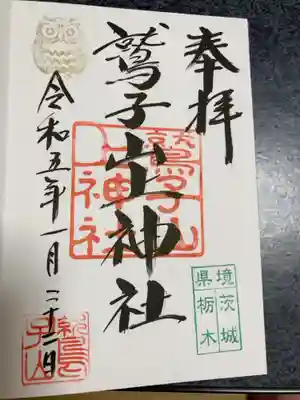 奉拝
鷲子山上神社
鷲子山上神社
令和五年一月二十二日
境茨城
県栃木